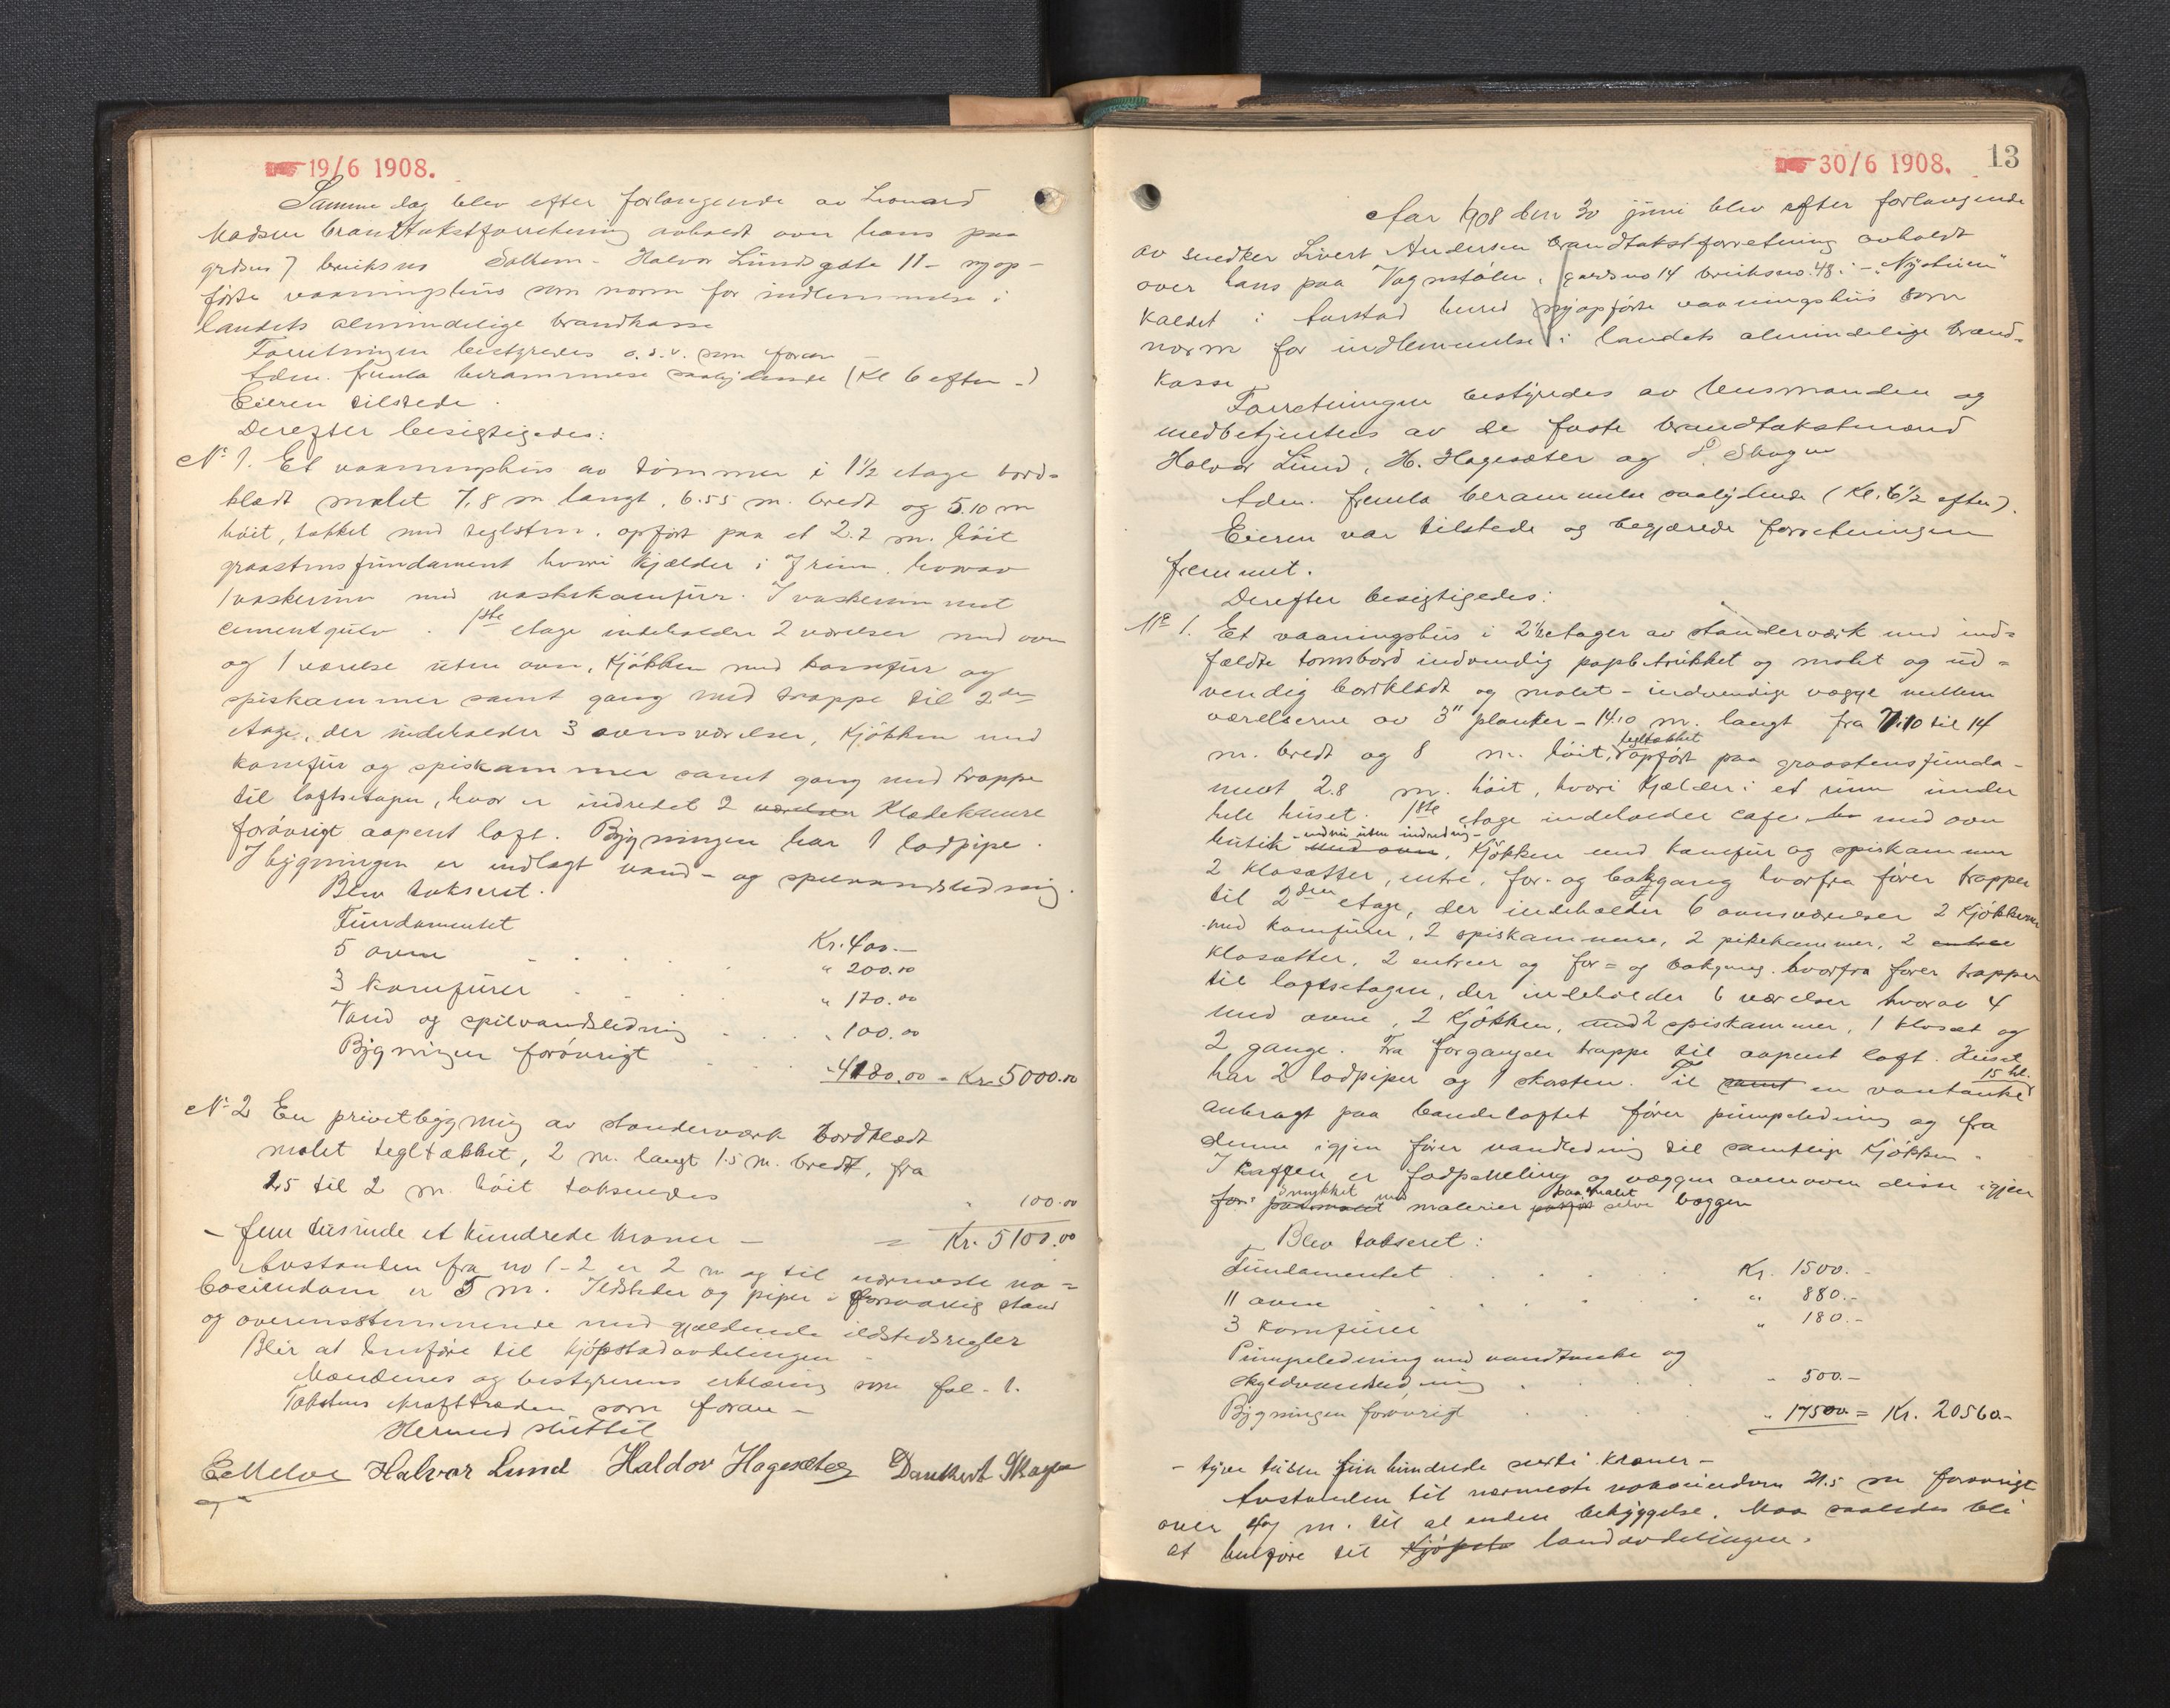 19/6 1908.
Samme dag blev efter forlangende av Leonard
Madsen brandtakstforretning avholdt over hans paa
grdsno 7 bruksno Solhem - Halvor Lunds gate 11 - nyop-
førte vaaningshus som norm for indlemmelse i
landets almindelige brandkasse
Forretningen bestyredes o.s.v. som foran -
Adm. fremla berammelse saalydende (Kl 6 eftm -)
Eieren tilstede.
Derefter besigtigedes:
No 1. Et vaaningshus av tømmer i 1½ etage bord-
klædt malet 7,8 m langt, 6.55 m. bredt og 5.10 m
høit, tækket med teglsten, opført paa et 2.2 m. høit
graastensfundament hvori kjælder i 7 rum, hvorav
1 vaskerum med vaskekamfur. I vaskerum met
cementgulv. 1ste etage indeholder 2 værelser med ovn
og 1 værelse uten ovn, kjøkken med komfur og
spiskammer samt gang med trappe til 2den
etage, der indeholder 3 ovnsværelser, kjøkken med
komfur og spiskammer samt gang med trappe
til loftsetagen, hvor er indredet 2 værelser klædekamre
forøvrigt aapent loft. Bygningen har 1 lodpipe.
I bygningen er indlagt vand- og spilvandsledning.
Blev takseret.
Fundamentet Kr. 400.-
5 ovne " 200.00
3 komfurer " 120.00
Vand og spilvandsledning " 100.00
Bygningen forøvrigt " 4180.00 = Kr. 5000.00
No 2 En privetbygning av standerværk bordklædt
malet tegltækket, 2 m. langt 1.5 m. bredt, fra
1.5 til 2 m. høit takseredes " 100.00
- fem tusinde et hundrede kroner - = Kr. 5100.00
Avstanden fra no 1-2 er 2 m og til nærmeste na-
boeiendom er 5 m. Ildsteder og piper i forsvarlig stand
og overensstemmende med gjældende ildstedsregler
Blir at henføre til kjøpstadavdelingen -
Mændenes og bestyrerens erklæring som fol. 1.
Takstens ikrafttræden som foran -
Hermed sluttet
Halvor Lund Haldor Hagesæter Dankert Skagen
30/6 1908. 13
Aar 1908 den 30 juni blev efter forlangende
av snedker Sivert Andersen brandtakstforretning avholdt
over hans paa Vognstølen, gaardsno 14 bruksno. 48: - "Nystuen"
kaldet i Aarstad herred nyopførte vaaningshus som
norm for indlemmelse i landets almindelige brand-
kasse
Forretningen bestyredes av lensmanden og
medbetjentes av de faste brandtakstmænd
Halvor Lund, H. Hagesæter og D. Skagen
Adm. fremla berammelse saalydende (Kl. 6½ eftm).
Eieren var tilstede og begjærede forretningen
fremmet.
Derefter besigtigedes:
No 1. Et vaaningshus i 2½ etager av standerværk med ind-
fældte tomsbord indvendig papbetrukket og malet og ut-
vendig bordklædt og malet - indvendige vægge mellem
værelserne av 3" planker - 14.10 m. langt fra 7.10 til 14
m. bredt og 8 m. høit, tegltækket opført paa graastensfunda-
ment 2.8 m. høit, hvori kjælder i et rum under
hele huset. 1ste etage indeholder cafe med ovn
butik - endnu uten indredning - med ovn, kjøkken med komfur og spiskammer
2 klosætter, entré, for- og bakgang hvorfra fører trapper
til 2den etage, der indeholder 6 ovnsværelser 2 kjøkkener
med komfurer, 2 spiskammere, 2 pikekammer, 2 entreer
klosætter, 2 entreer og for- og bakgang, hvorfra fører trapper
til loftsetagen, der indeholder 6 værelser hvorav 4
med ovne, 2 kjøkken, med 2 spiskammer, 1 klosæt og
2 gange. Fra forgangen trappe til aapent loft. Huset
har 2 lodpiper og 1 skorsten. Til samt en 15 hl. vantanke
anbragt paa bandeloftet fører pumpeledning og fra
denne igjen fører vandledning til samtlige kjøkken.
I kaffeen er fodpaneling og væggen ovenover disse igjen
smykket med malerier paa malet selve væggen
Blev takseret:
Fundamentet Kr. 1500.-
11 ovne " 880.-
3 komfurer " 180.-
Pumpeledning med vandtanke og
skyldvandsledning " 500.-
Bygningen forøvrigt " 17500.- = Kr. 20560.-
- tyve tusen fem hundrede seksti kroner -
Avstanden til nærmeste naboeiendom 21.5 m forøvrigt
over m. til al anden bebyggelse. Maa saaledes bli
at henføre til kjøpsta landavdelingen.